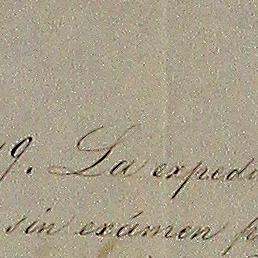 19. La exped
sin exámen